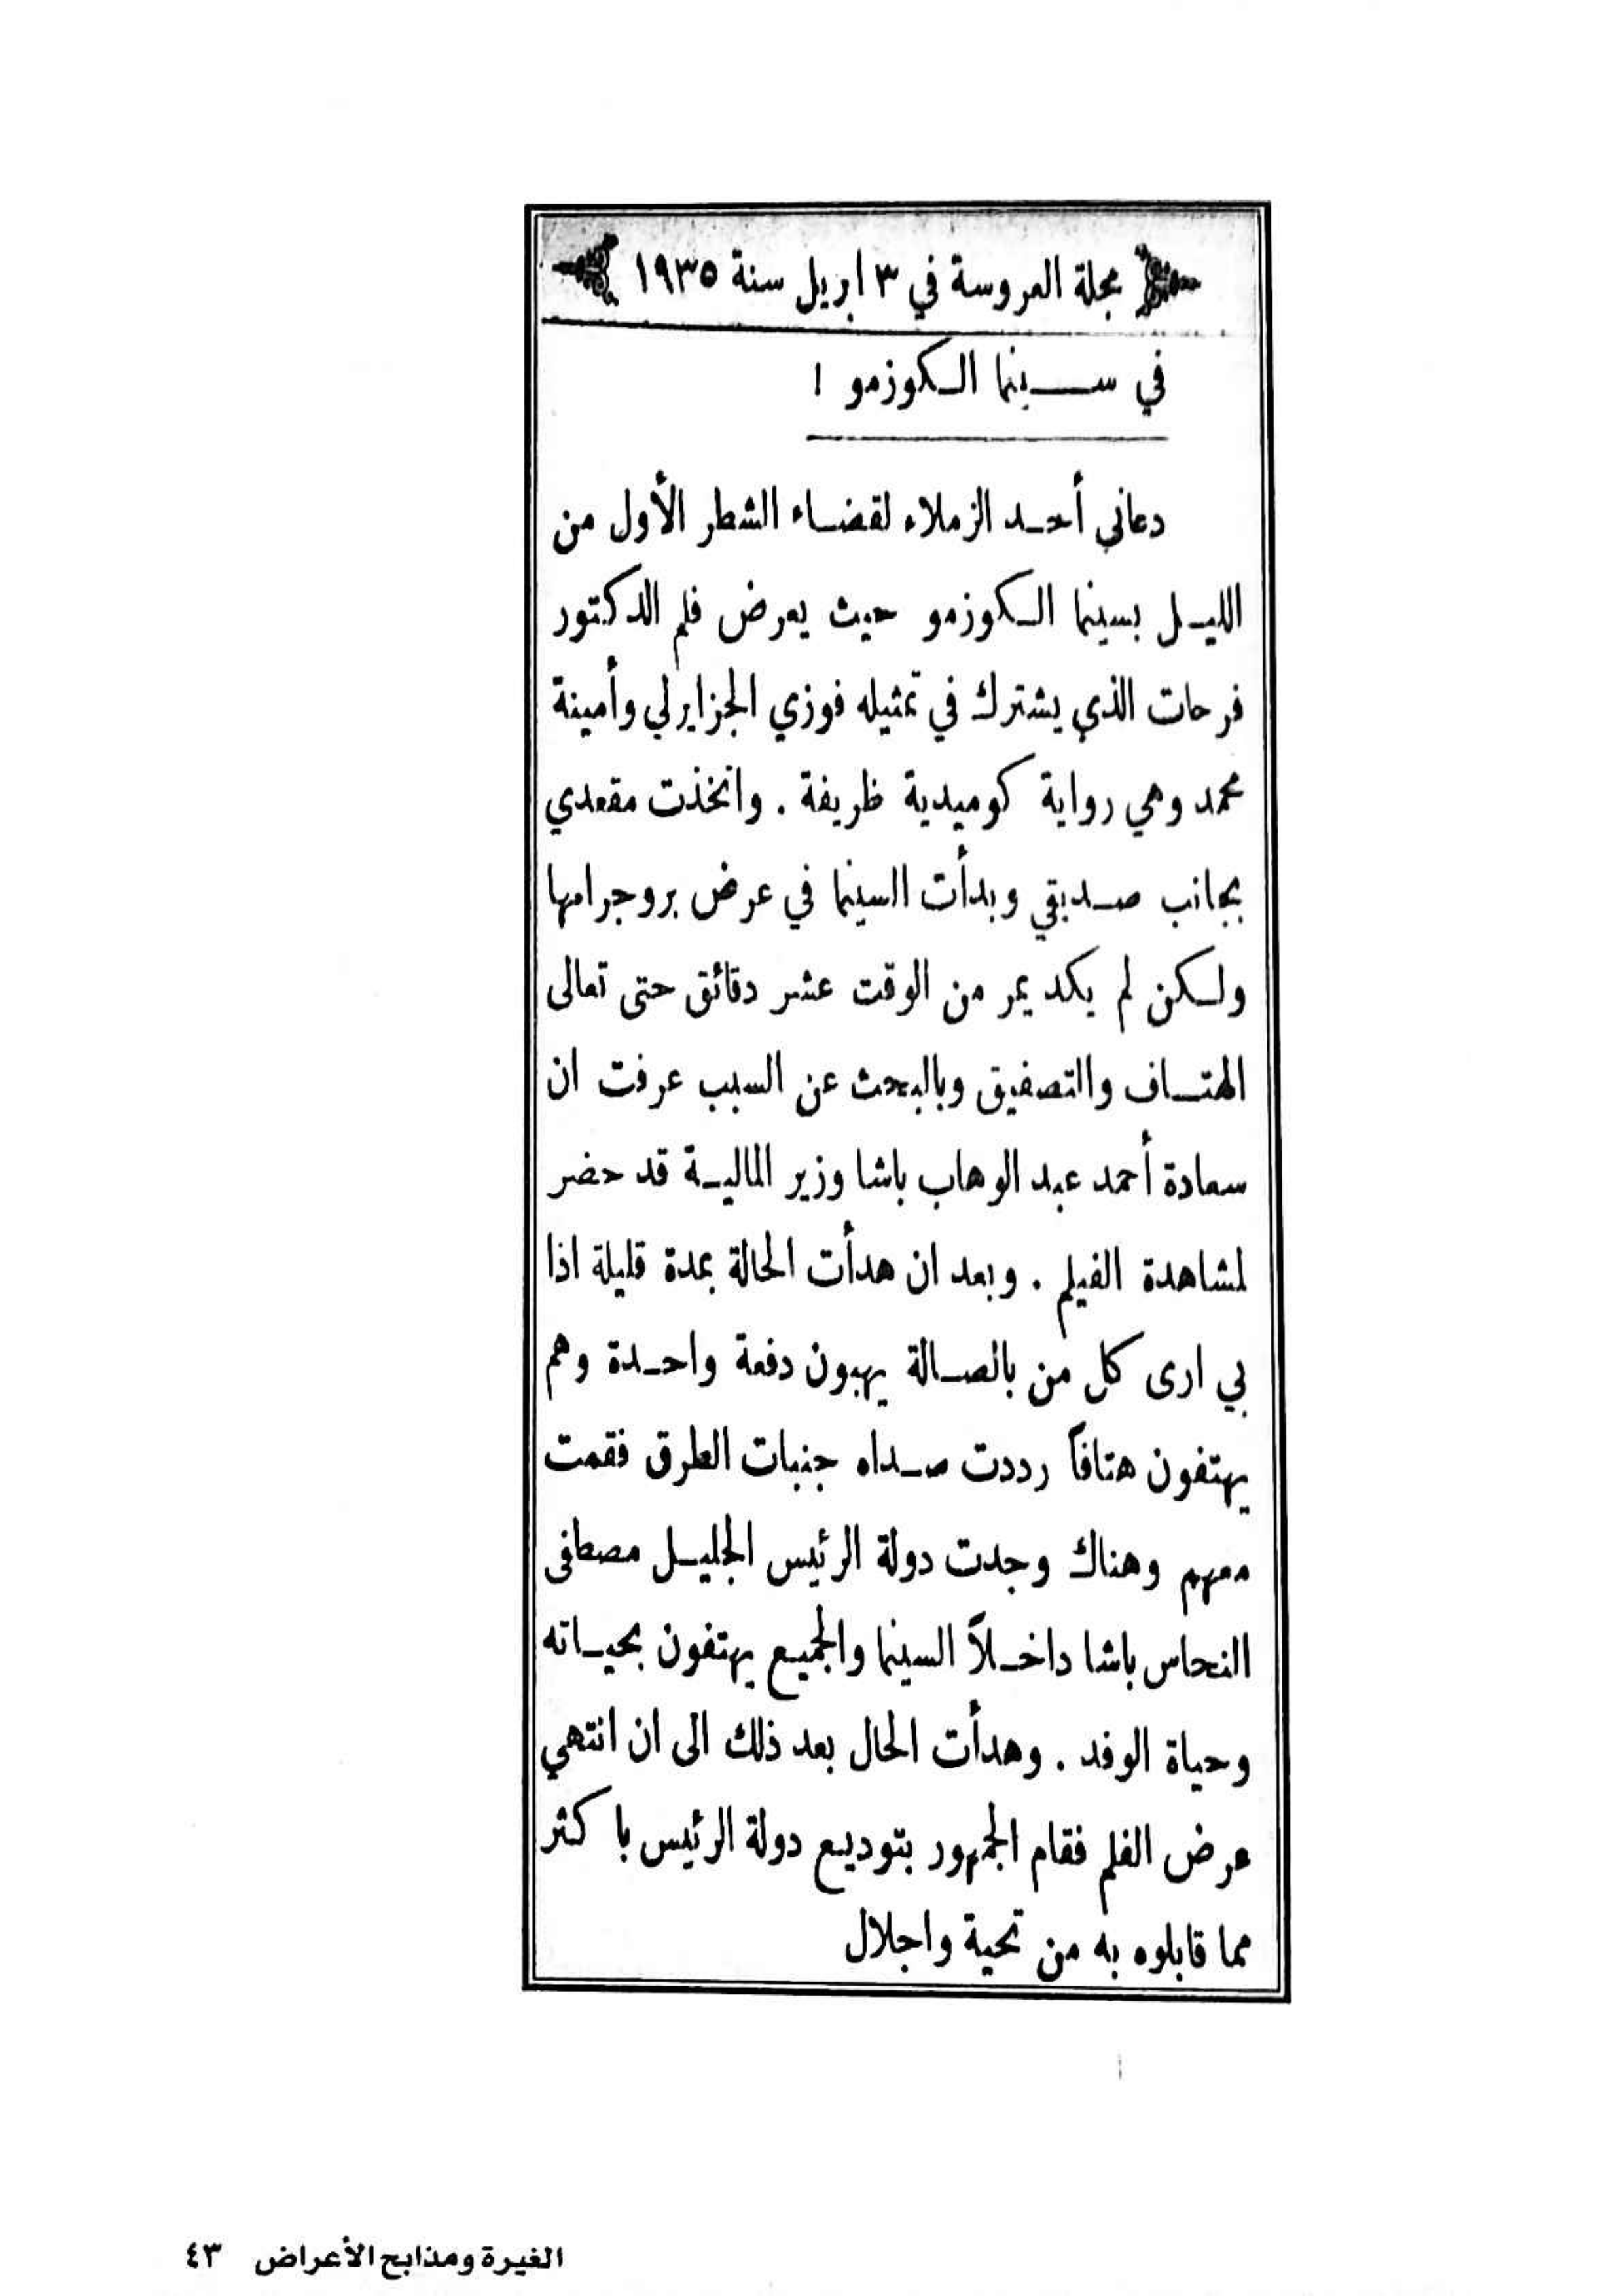 مجلة العروسة في ٣ ابريل سنة ١٩٣٥
في سينما الكوزمو !
دعاني أحد الزملاء لقضاء الشطر الأول من
الليل بسينما الكوزمو حيث يعرض فلم الدكتور
فرحات الذي يشترك في تمثيله فوزي الجزايرلي وأمينة
محمد وهي رواية كوميدية ظريفة . واتخذت مقعدي
بجانب صديقي وبدأت السينما في عرض بروجرامها
ولكن لم يكد يمر من الوقت عشر دقائق حتى تعالى
الهتاف والتصفيق وبالبحث عن السبب عرفت ان
سعادة أحمد عبد الوهاب باشا وزير المالية قد حضر
لمشاهدة الفيلم . وبعد ان هدأت الحالة بمدة قليلة اذا
بي ارى كل من بالصالة يهبون دفعة واحدة وهم
يهتفون هتافاً رددت صداه جنبات الطرق فقمت
معهم وهناك وجدت دولة الرئيس الجليل مصطفى
النحاس باشا داخلاً السينما والجميع يهتفون بحياته
وحياة الوفد . وهدأت الحال بعد ذلك الى ان انتهي
عرض الفلم فقام الجمهور بتوديع دولة الرئيس باكثر
مما قابلوه به من تحية واجلال
الغيرة ومذابح الأعراض ٤٣